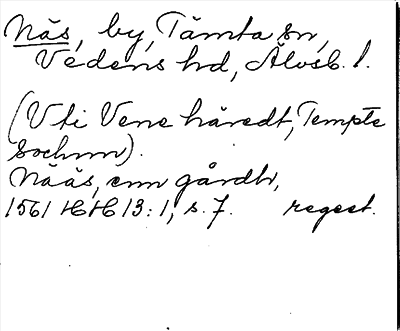 Näs, by, Tämta sn,
Vedens hd, Älvsb. l.
(Vti Vene häredt, Tempte
Sochnn).
Nääs, enn gårdh,
1561 HH 13:1, s. 7. regest.